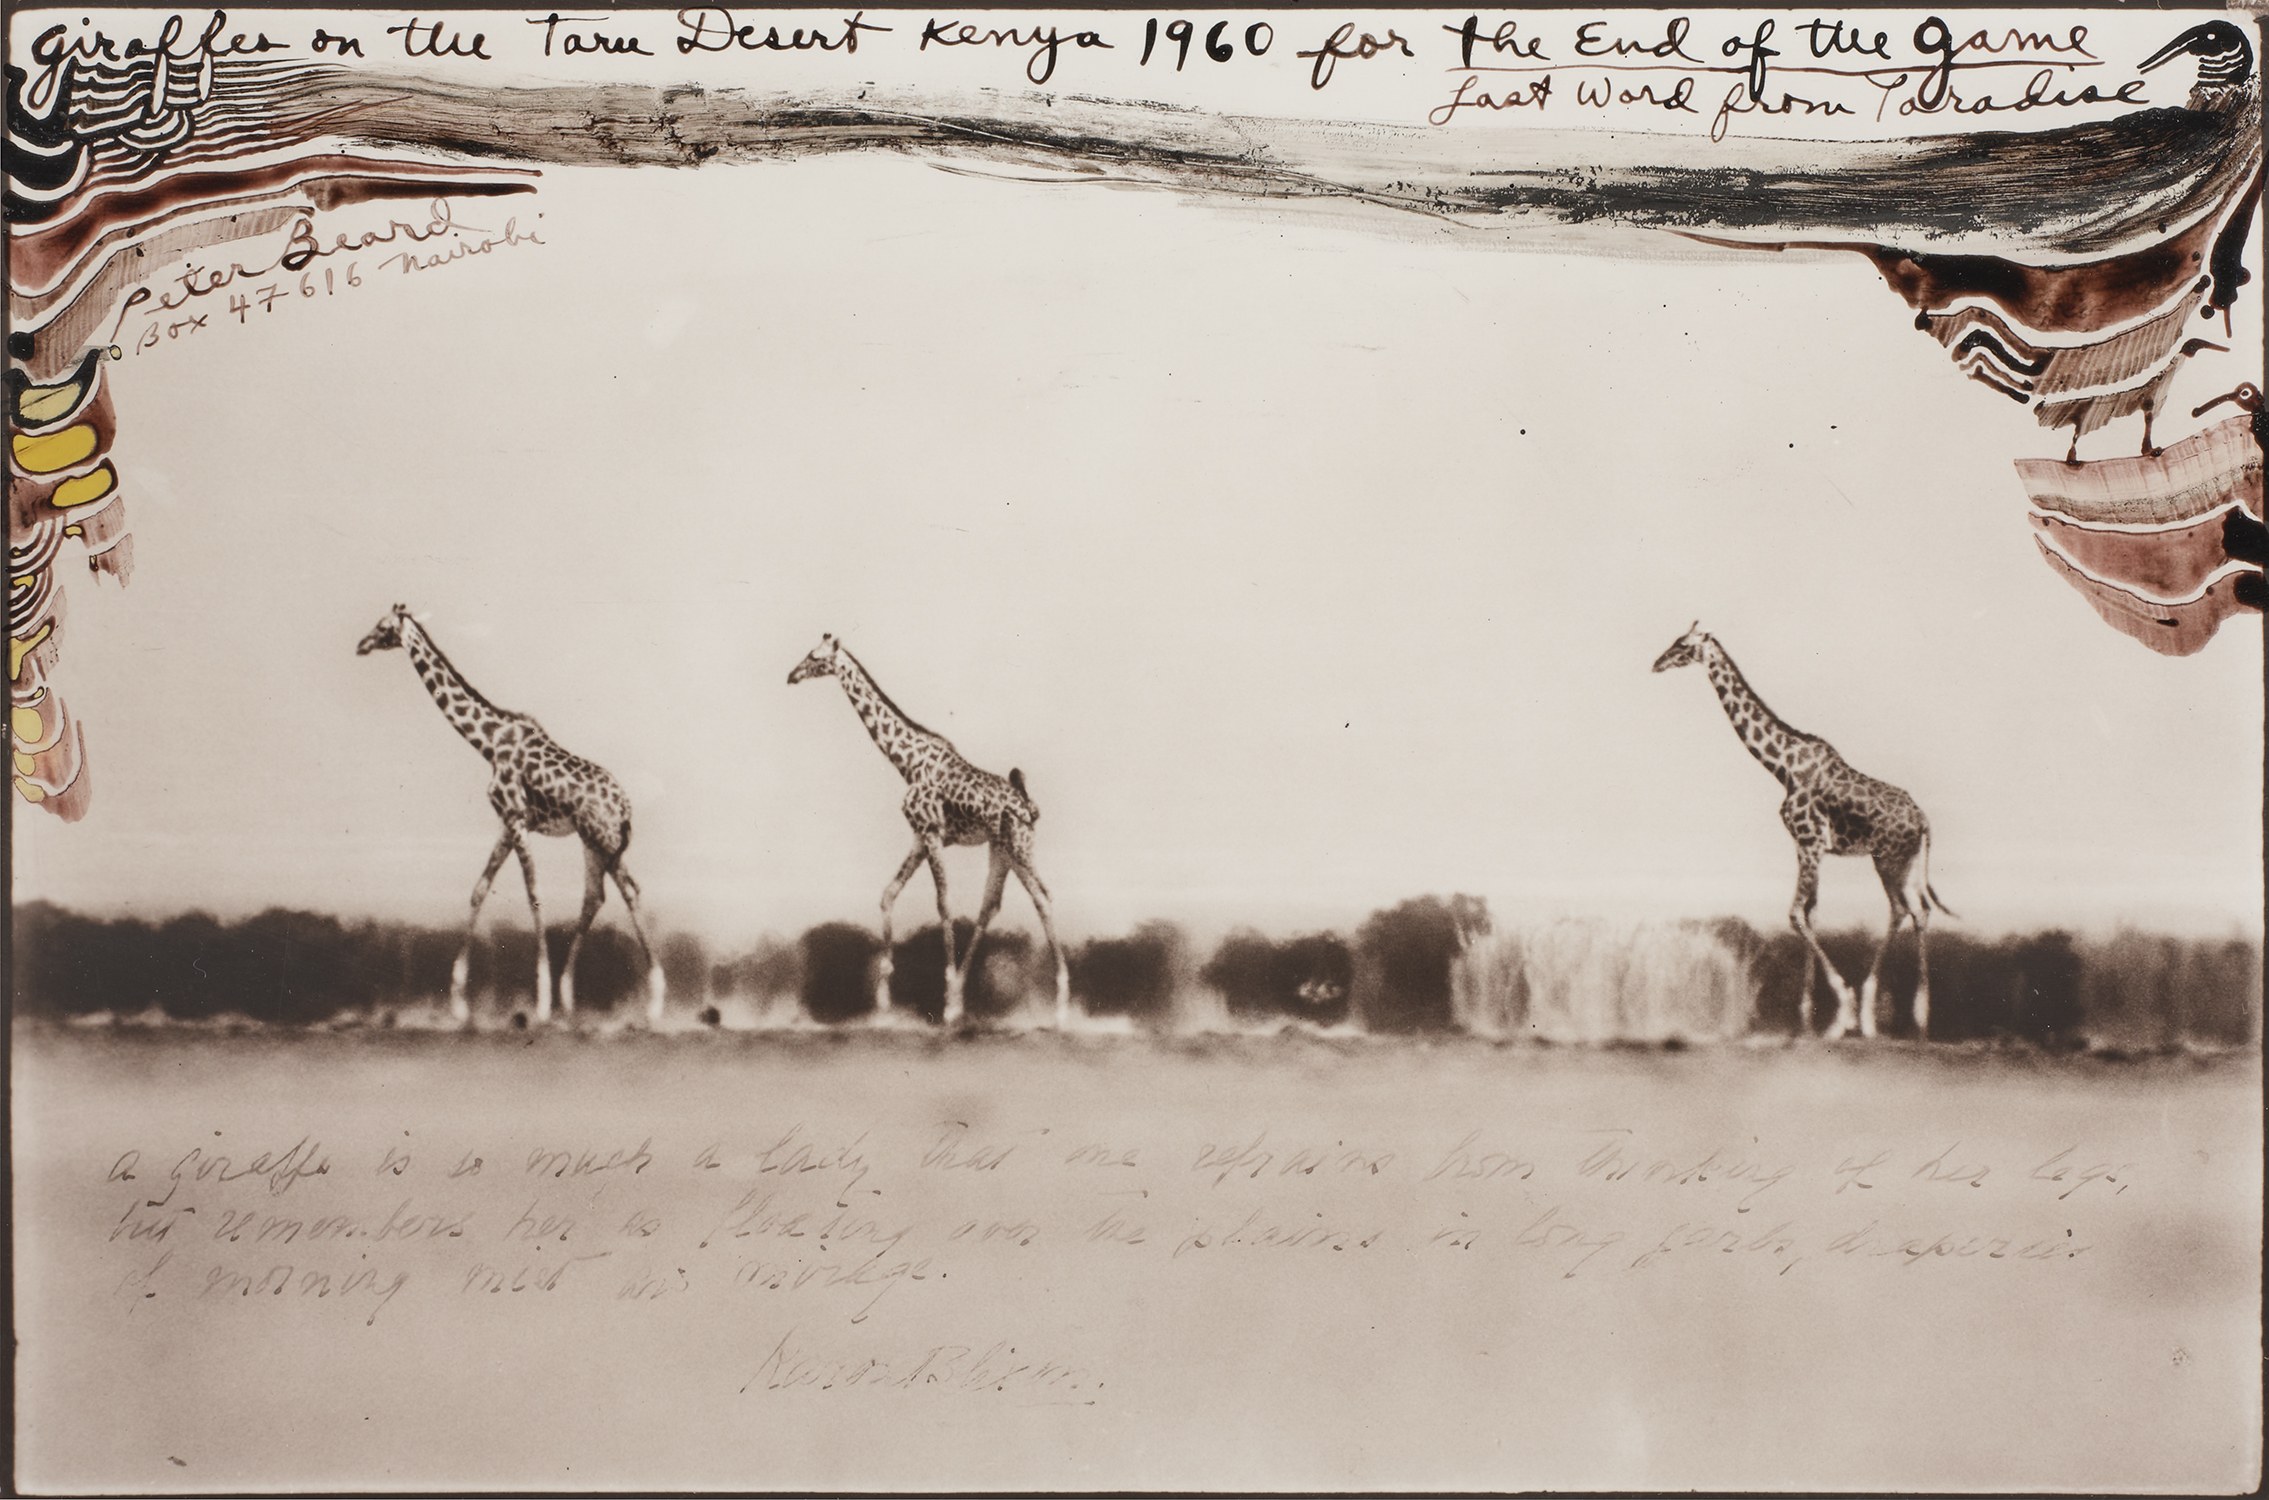 giraffes on the Taru Desert Kenya 1960 for the End of the Game
Last Word from Paradise
Peter Beard
Box 47616 Nairobi
a giraffe is so much a lady that one refrains from thinking of her legs,
but remembers her as floating over the plains in long garbs, draperies
of morning mist and mirage.
Karen Blixen.